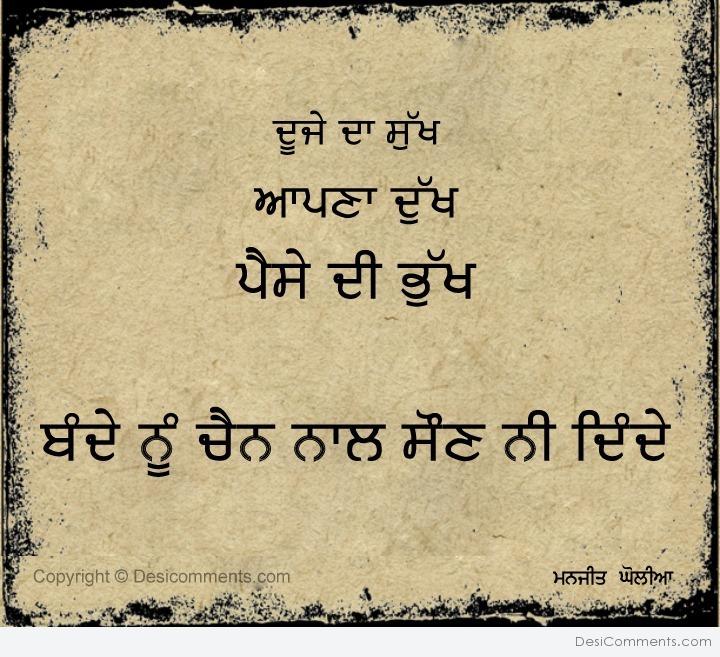 ਦੂਜੇ ਦਾ ਸੁੱਖ
ਆਪਣਾ ਦੁੱਖ
ਪੈਸੇ ਦੀ ਭੁੱਖ
ਬੰਦੇ ਨੂੰ ਚੈਨ ਨਾਲ ਸੌਣ ਨੀ ਦਿੰਦੇ
Copyright © Desicomments.com
ਮਨਜੀਤ ਘੋਲੀਆ
DesiComments.com